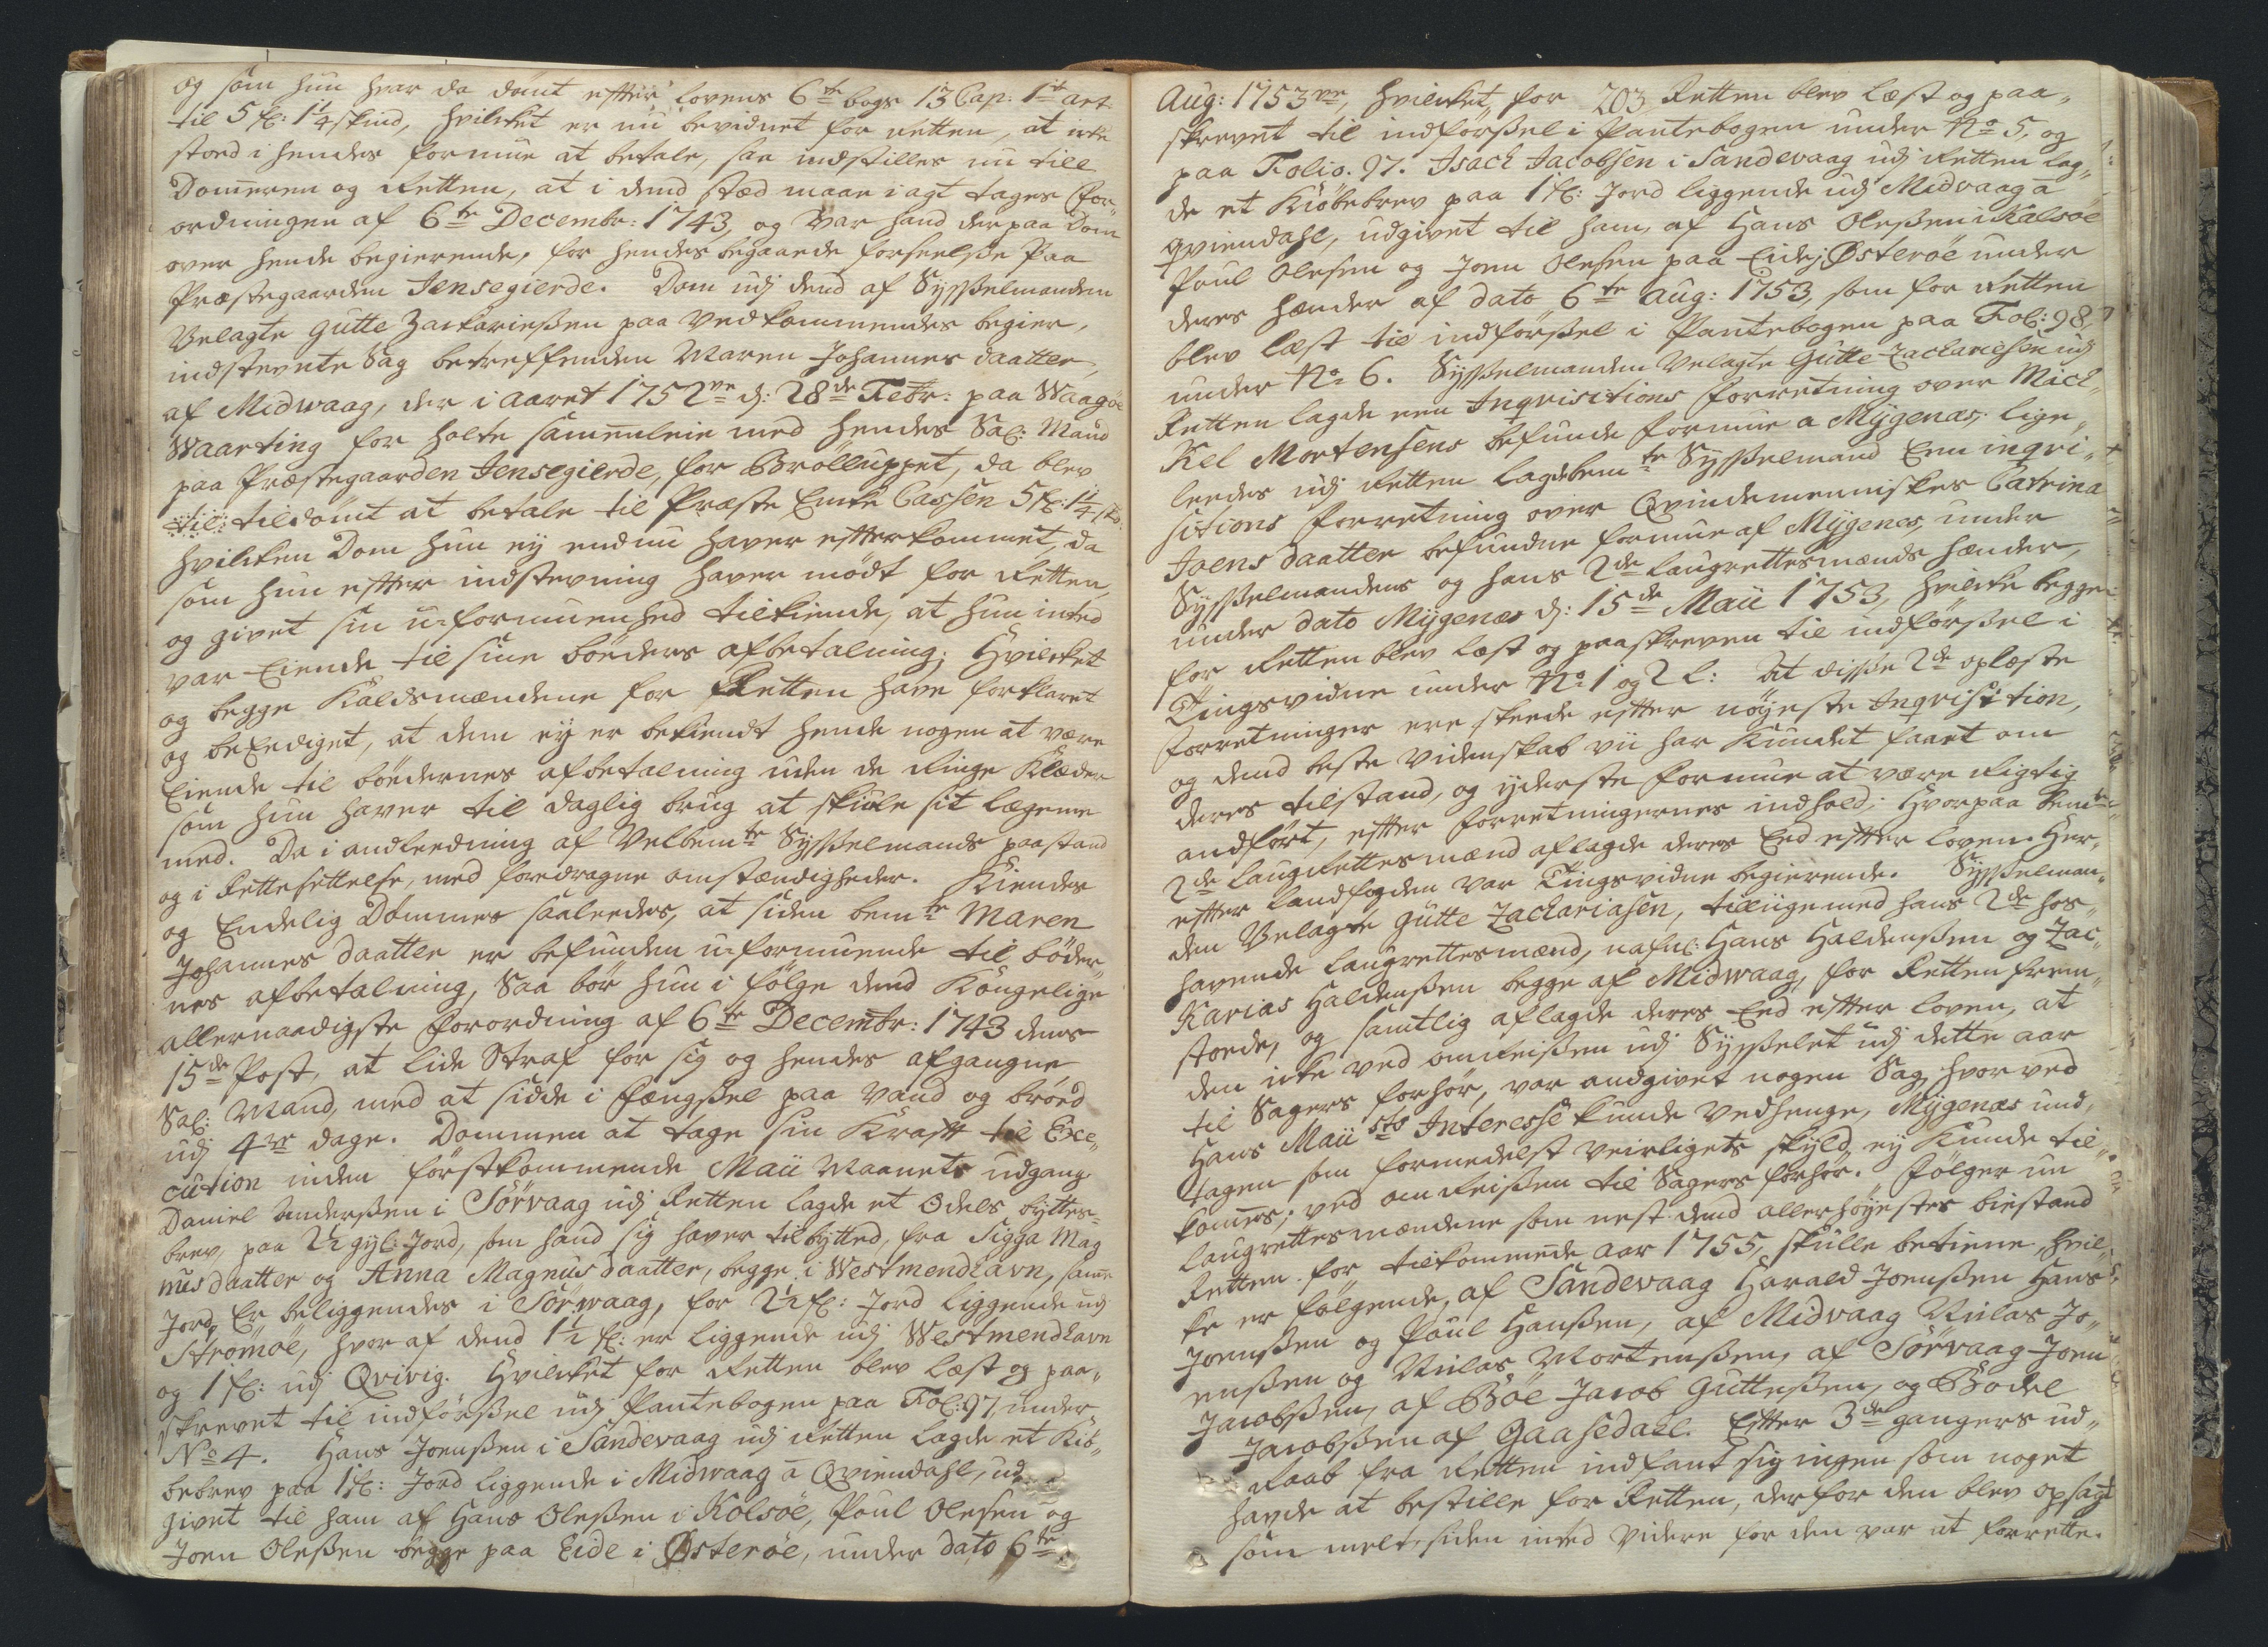 og som hun hvar da dömt efter lovens 6te bogs 13 Cap: 1te art.
til 5 fl: 1¼ skind, hvilcket er nu bevidnet for retten, at icke
stoed i hendes formue at betale, saa indstilles nu till
Dom̄eren og Retten, at i dend stæd maae i agt tages For„
ordningen af 6te Decembr: 1743, og var hand der paa Dom
over hende begierende, for hendes begaaede forseelße Paa
Præstegaarden Jensegierde. Dom udj dend af Sysselmanden
Velagte Gutte Zackarießen paa vedkommendes begier,
indstevnte Sag betreffenden Maren Johannes daatter,
af Midwaag, der i Aaret 1752ve d: 28de Febr: paa Waagöe
Waarting for holte sam̄enleie med hendes Sal: Mand
paa Præstegaarden Jensegierde, for Brölluppet, da blev
til: tildömt at betale til Præste Encke Cassen 5 fl: 1¼ skd:
hvilcken Dom hun ey endnu haver efterkommet, da
som hun efter indstevning haver mödt for Retten,
og givet sin u-formuenhed tilkiende, at hun inted
var Eiende til sine böeders afbetalning; Hvilcket
og begge Kaldsmændene for Retten have forklaret
og beEediget, at dem ey er bekiendt hende nogen at være
Eiende til böedernes afbetalning uden de Ringe Klæder
som hun haver til daglig brug at skiule sit Lægeme
med. Da i andleedning af Velbemte Sysselmands paastand
og i Rettesettelse, med foredragne omstændigheder. Kiendes
og Endelig Dömmes saaleedes, at siden bemte Maren
Johannes daatter er befunden u-formuende til böder„
nes afbetalning, Saa bör hun i fölge dend Kongelige
allernaadigste Forordning af 6te Decembr: 1743 dens
15de Post, at lide Straf for sig og hendes afgangne
Sal: Mand, med at sidde i Fængßel paa vand og bröed
udj 4re dage. Dommen at tage sin Kraft til Exe„
cution inden förstkommende Maii Maanets udgang.
Daniel Anderßen i Sörvaag udj Retten lagde et Odels bytte„
brev, paa 2½ gyl: Jord, som hand sig haver tilbytted, fra Sigga Mag
nus daatter og Anna Magnus daatter, begge i Westmendhavn, sam̄e
Jord, Er beliggendes i Sörwaag, for 2½ fl: Jord liggende udj
Strömöe, hvor af dend 1½ fl: er liggende udj Westmendhavn
og 1 fl: udj Qvivig. Hvilcket for Retten blev læst og paa„
skrevet til indförßel udj Pantebogen paa Fol: 97, under
No 4. Hans Joenßen i Sandevaag udj Retten lagde et Kiö„
bebrev paa 1 fl: Jord liggende i Midwaag a Qviendahl, ud
givet til ham af Hans Oleßen i Kolsöe, Poul Olesen og
Joen Oleßen begge paa Eide i Österöe, under dato 6te
Aug: 1753ve, hvilcket, for 203 Retten blev læst og paa„
skrevet til indförßel i Pantebogen under No 5, og
paa Folio. 97. Isach Jacobsen i Sandevaag udj Retten lag„
de et Kiöbebrev paa 1 fl: Jord liggende udj Midvaag a
Qviendahl, udgivet til ham, af Hans Oleßen i Kalsöe
Poul Olesen og Joen Olesen paa Eide i Österöe under
deres hænder af dato 6te Aug: 1753, som for Retten
blev læst til indförßel i Pantebogen paa Fol: 98,
under No 6. Sysselmanden Velagte Gutte Zacharießen udj
Retten lagde een Inqvisitions forretning over Mich„
kel Mortensens befunde formue a Mygenæs; lige„
leedes udj Retten lagde bemte Sysselmand Een inqvi„
sitions forretning over Qvindemenniskes Catrina
Joens daatter befundne formue af Mygenæs, under
Sysselmandens og hans 2de laugrettesmænds hænder,
under dato Mygenæs d: 15de Maii 1753, hvilcke begge
for Retten blev læst og paaskreven til indförßel i
Tingsvidne under No 1 og 2 l: At disse 2de oplæste
forretninger ere skeede efter nöyeste Inqvisition,
og dend beste videnskab vii har Kundet faaet om
deres tilstand, og yderste formue at være Rigtig
andfört, efter forretningernes indhold; Hvorpaa bemte
2de laugRettesmænd aflagde deres Eed efter loven. Her„
efter landfogden var Tingsvidne begierende. Sysselman„
den Velagte Gutte Zachariasen, tilliige med hans 2de hos„
havende laugrettesmænd, nafnl: Hans Haldanßen og Zac„
karias Haldanßen begge af Midwaag, for Retten frem„
stoede, og samtlig aflagde deres Eed efter loven, at
dem icke ved omReißen udj Sysselet udj dette aar
til Sagers forhör, var andgivet nogen Sag, hvor ved
Hans Maiists Interesse kunde vedhenge, Mygenæs und„
tagen som formedelst veirligets skyld, ey Kunde til„
komm̄es; ved omReißen til Sagers forhör. Fölger nu
laugrettesmændene som nest dend allerhöyestes bistand
Retten for tilkommende Aar 1755, skulle betiene, hvil„
ke er fölgende, af Sandevaag Harald Joenßen Hans
Joenßen og Poul Hanßen, af Midvaag Niclas Jo„
enßen og Niclas Mortenßen, af Sörvaag Joen
Jacobßen, af Böe Jacob Gutteßen, og Bodel
Jacobßen af Gaasedahl. Efter 3de gangers ud„
Raab fra Retten indfant sig ingen som noget
havde at bestille for Retten, derfor den blev opsagt
som melt, siden inted videre for den var at forrette.